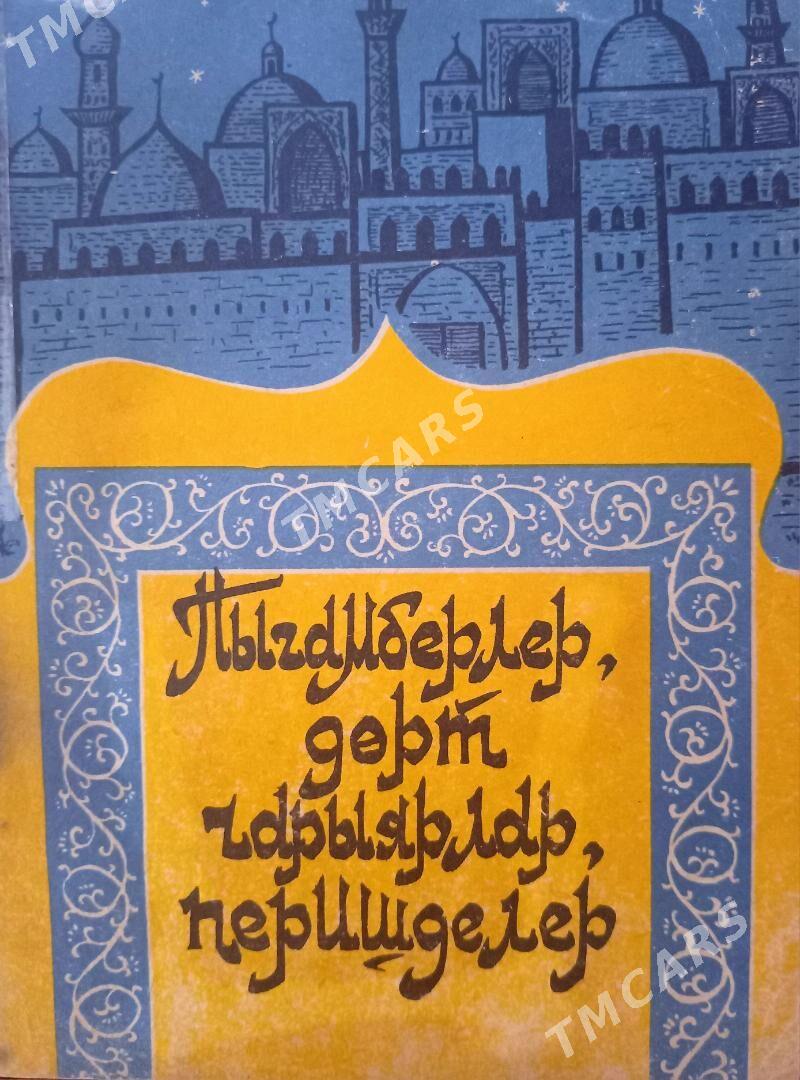 TMCARS
Пыгамберлер,
дөрт
чарыярлар,
перишделер
TMCARS
TMCARS